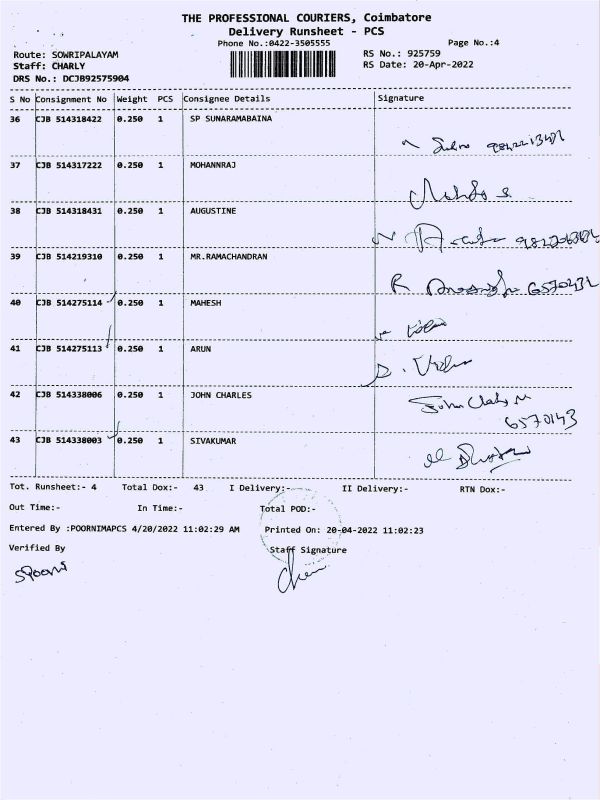 THE PROFESSIONAL COURIERS, Coimbatore
Delivery Runsheet - PCS
Phone No.:0422-3505555
Page No.:4
Route: SOWRIPALAYAM
RS No.: 925759
Staff: CHARLY
RS Date: 20-Apr-2022
DRS No.: DCJB92575904
S No Consignment No Weight PCS Consignee Details Signature
36 CJB 514318422 0.250 1 SP SUNARAMABAINA
37 CJB 514317222 0.250 1 MOHANNRAJ
38 CJB 514318431 0.250 1 AUGUSTINE
39 CJB 514219310 0.250 1 MR.RAMACHANDRAN
40 CJB 514275114 0.250 1 MAHESH
41 CJB 514275113 0.250 1 ARUN
42 CJB 514338006 0.250 1 JOHN CHARLES
6570143
43 CJB 514338003 0.250 1 SIVAKUMAR
Tot. Runsheet:- 4 Total Dox:- 43 I Delivery:- II Delivery:- RTN Dox:-
Out Time:- In Time:- Total POD:-
Entered By :POORNIMAPCS 4/20/2022 11:02:29 AM Printed On: 20-04-2022 11:02:23
Verified By Staff Signature